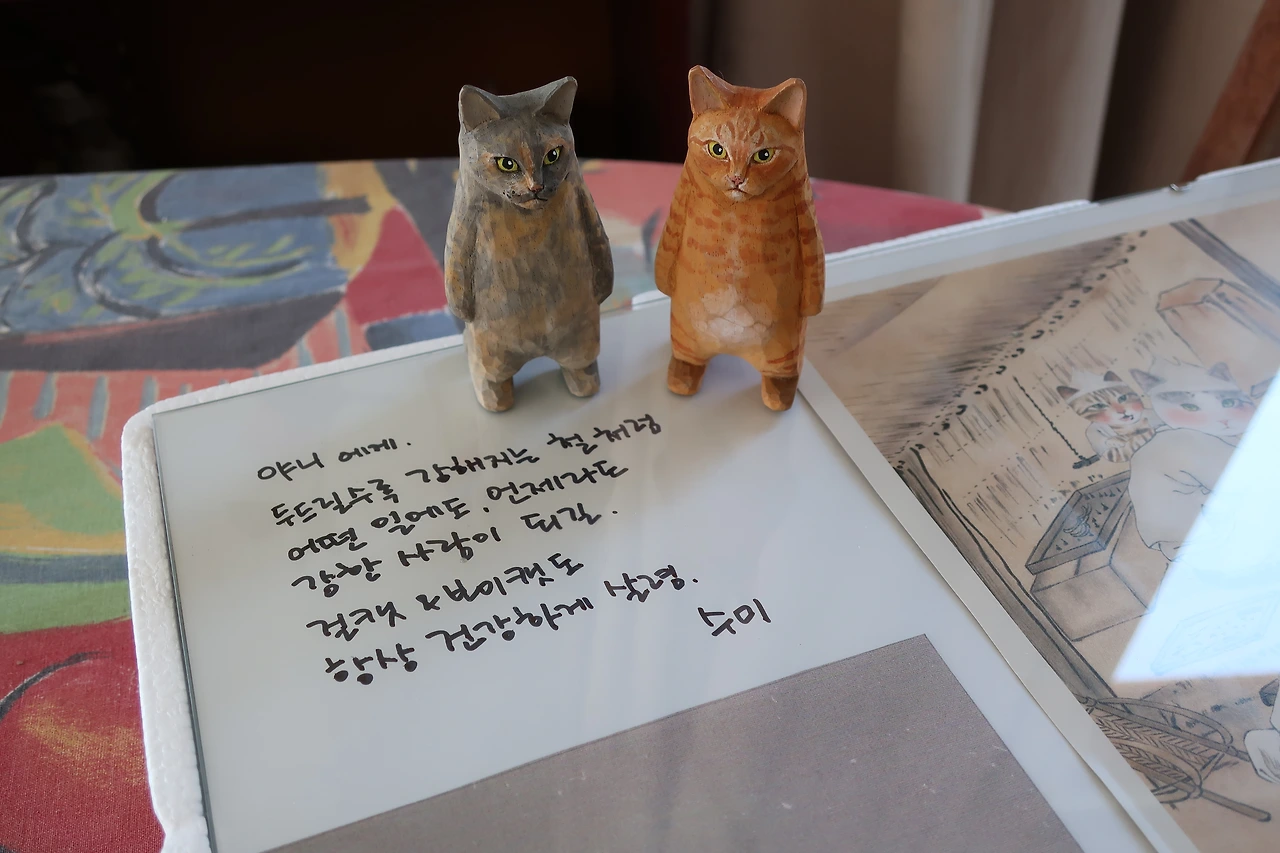 야니 에게.
두드릴수록 강해지는 철처럼
어떤 일에도. 언제라도
강한 사람이 되길.
걸캣 & 뷰이캣도
항상 건강하게 살렴.
수미